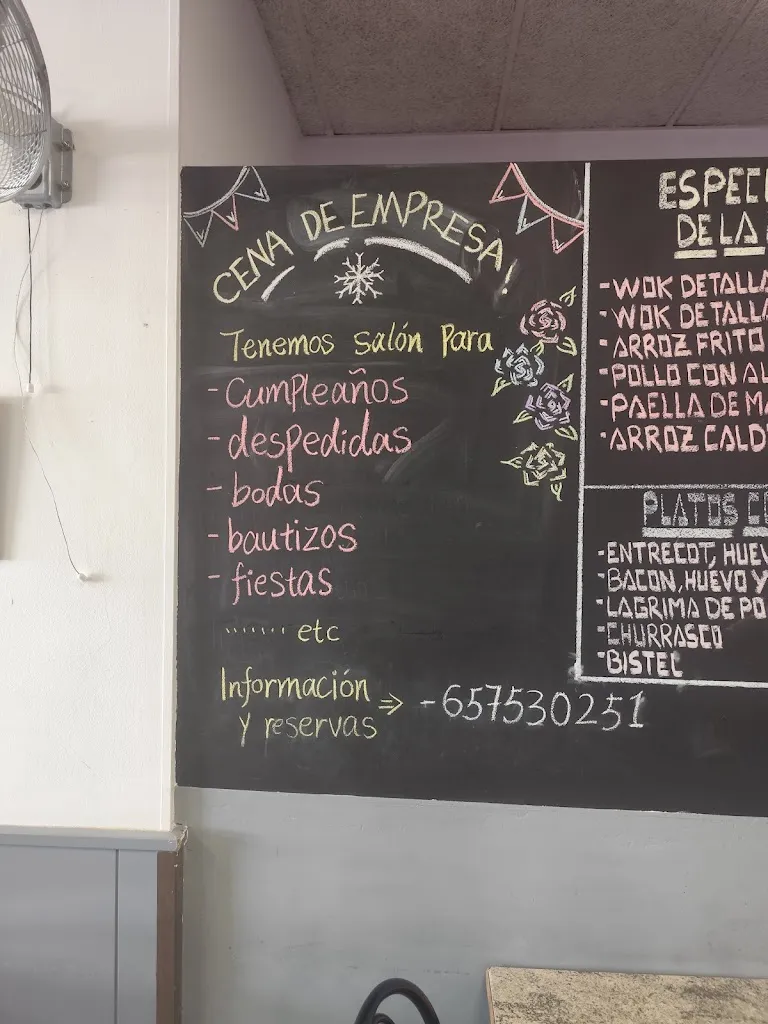 CENA DE EMPRESA!
Tenemos salón Para
- Cumpleaños
- despedidas
- bodas
- bautizos
- fiestas
....... etc
Información
y reservas
⇒ - 657530251
DE LA
- WOK DE
- WOK DE
· ARROZ FRITO
· POLLO CON
· PAELLA DE
· ARROZ
PLATOS
- ENTRECOT,
· BACON, HUEVO Y
· LAGRIMA DE
· CHURRASCO
· BISTEC